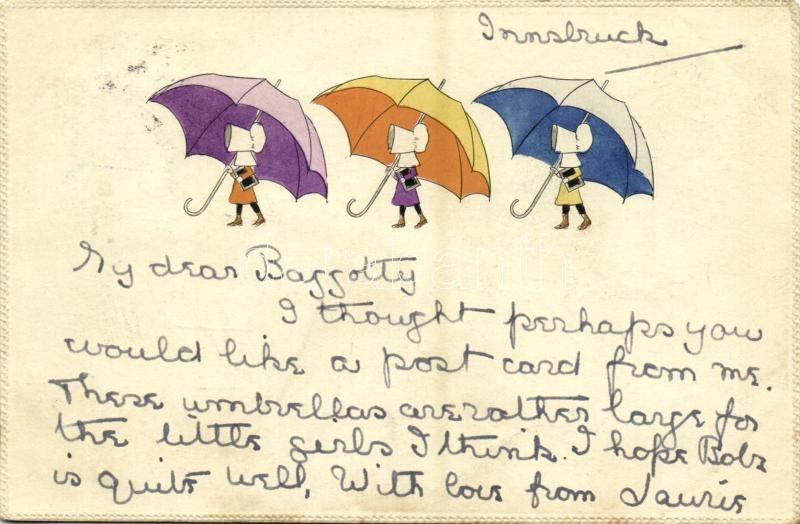 Innsbruck
My dear Baggotty
I thought perhaps you
would like a post card from me.
These umbrellas are rather large for
the little girls I think. I hope Bobs
is quite well, With love from Laurie